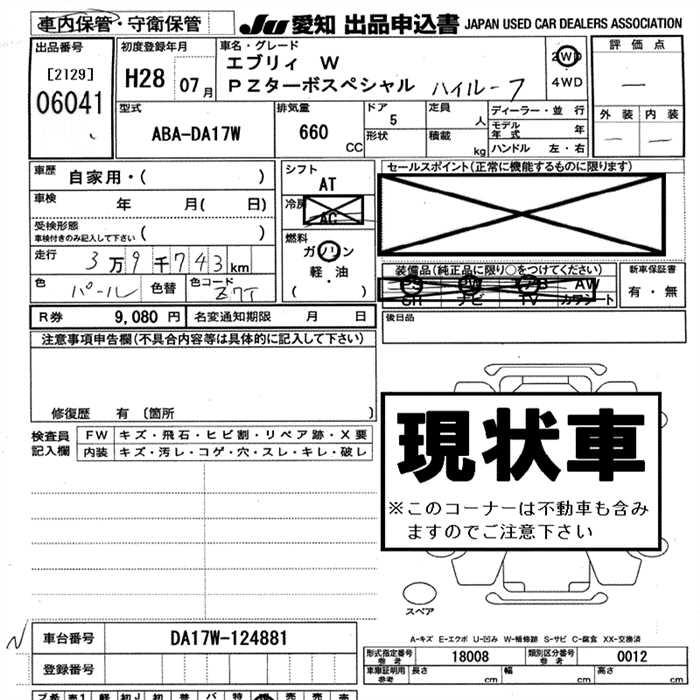 車内保管・守衛保管 JU 愛知 出品申込書 JAPAN USED CAR DEALERS ASSOCIATION
出品番号 初度登録年月 車名・グレード 評価点
[2129] H28 07月 エブリィ W 2WD
06041 PZターボスペシャル ハイルーフ 4WD
型式 排気量 ドア 定員 ディーラー・並行 外装 内装
ABA-DA17W 660 CC 5 人 モデル年式 年
形状 積載 kg ハンドル 左・右
車歴 自家用・( ) シフト セールスポイント(正常に機能するものに限ります)
AT
車検 年 月( 日) 冷房 AC
受検形態
車検付きのみ記入して下さい ( )
燃料
走行 3万9千743km ガソリン
軽・油
( )
装備品(純正品に限り○をつけてください) 新車保証書
PS PW AB AW
SR ナビ TV カワシート 有・無
色 パール 色替 色コード Z7T
R券 9,080円 名変通知期限 月 日 後日品
注意事項申告欄(不具合内容等は具体的に記入して下さい)
修復歴 有 〔箇所 〕
検査員記入欄 FW キズ・飛石・ヒビ割・リペア跡・X要
内装 キズ・汚レ・コゲ・穴・スレ・キレ・破レ
現状車
※このコーナーは不動車も含み
ますのでご注意下さい
スペア
A-キズ E-エクボ U-凹み W-補修跡 S-サビ C-腐食 XX-交換済
車台番号 DA17W-124881
形式指定番号 参考 18008 類別区分番号 参考 0012
登録番号
車庫証明用 参考 長さ cm 幅 cm 高さ cm